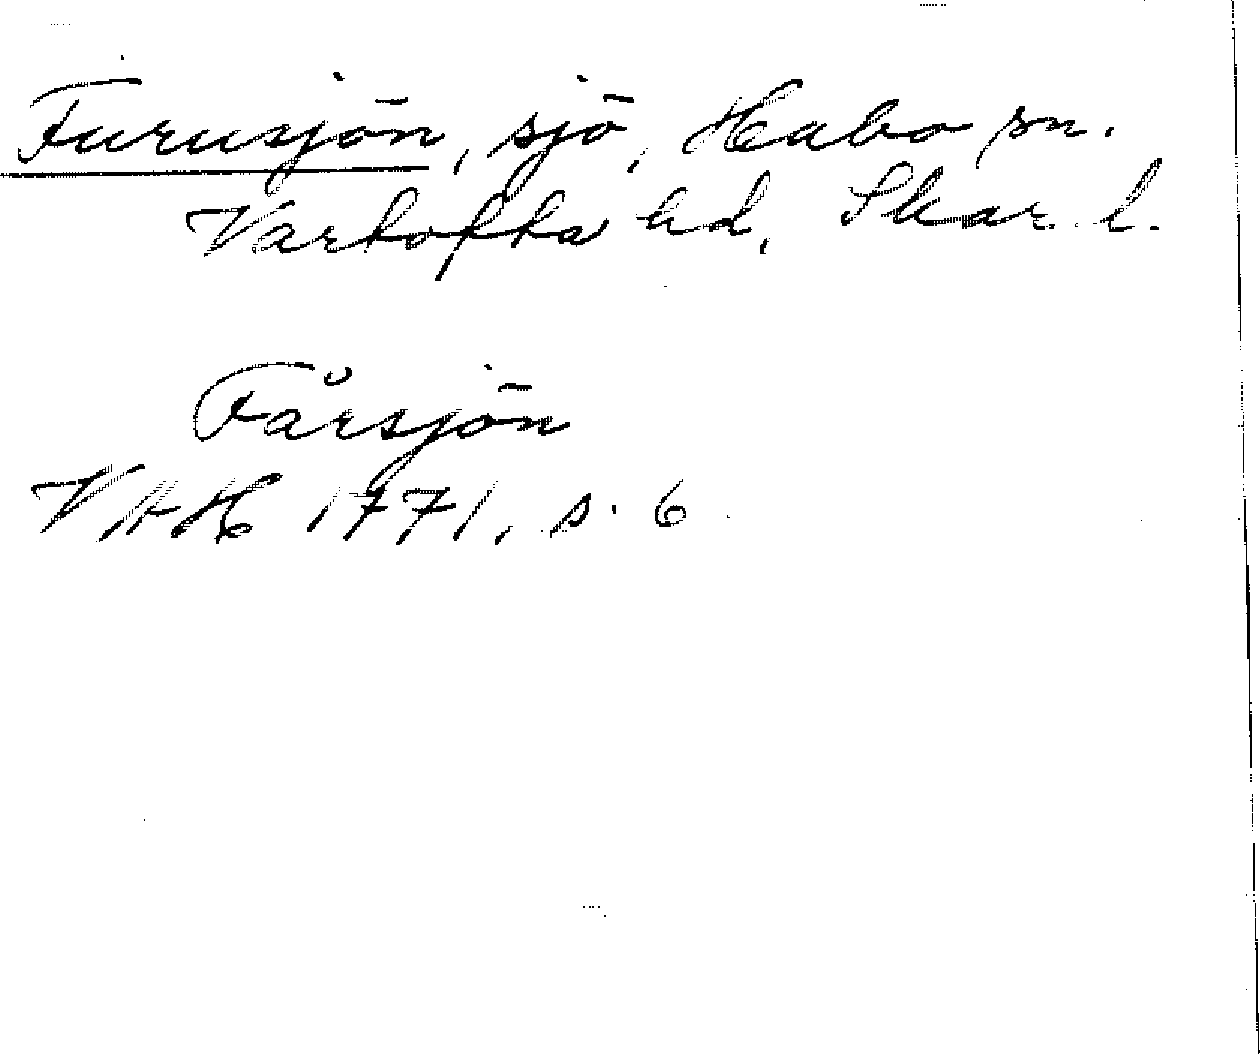 Furusjön, sjö, Habo sn.
Vartofta hd, Skar. l.
Fårsjön
VAH 1771, s. 6